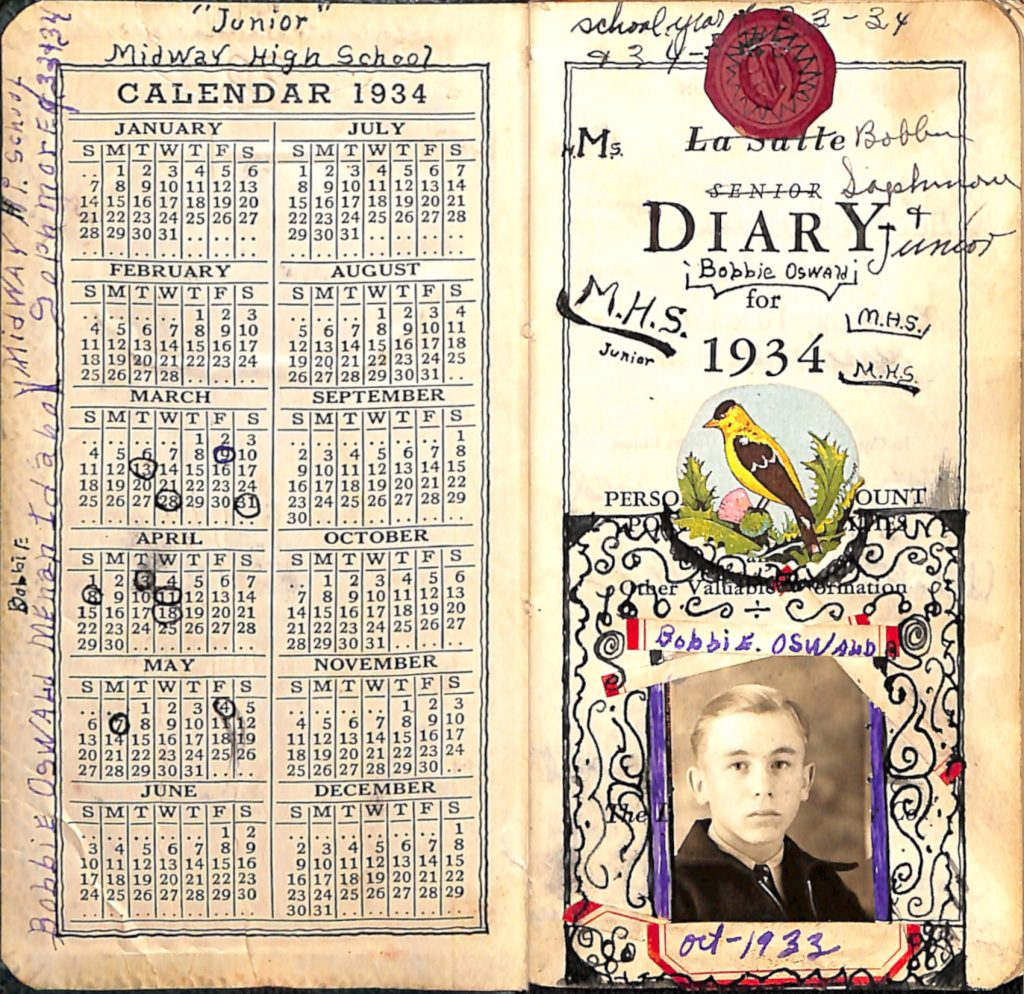 "Junior"
Midway High School
CALENDAR 1934
JANUARY
S M T W T F S
1 2 3 4 5 6
7 8 9 10 11 12 13
14 15 16 17 18 19 20
21 22 23 24 25 26 27
28 29 30 31
FEBRUARY
S M T W T F S
1 2 3
4 5 6 7 8 9 10
11 12 13 14 15 16 17
18 19 20 21 22 23 24
25 26 27 28
MARCH
S M T W T F S
1 2 3
4 5 6 7 8 9 10
11 12 13 14 15 16 17
18 19 20 21 22 23 24
25 26 27 28 29 30 31
APRIL
S M T W T F S
1 2 3 4 5 6 7
8 9 10 11 12 13 14
15 16 17 18 19 20 21
22 23 24 25 26 27 28
29 30
MAY
S M T W T F S
1 2 3 4 5
6 7 8 9 10 11 12
13 14 15 16 17 18 19
20 21 22 23 24 25 26
27 28 29 30 31
JUNE
S M T W T F S
1 2
3 4 5 6 7 8 9
10 11 12 13 14 15 16
17 18 19 20 21 22 23
24 25 26 27 28 29 30
JULY
S M T W T F S
1 2 3 4 5 6 7
8 9 10 11 12 13 14
15 16 17 18 19 20 21
22 23 24 25 26 27 28
29 30 31
AUGUST
S M T W T F S
1 2 3 4
5 6 7 8 9 10 11
12 13 14 15 16 17 18
19 20 21 22 23 24 25
26 27 28 29 30 31
SEPTEMBER
S M T W T F S
1
2 3 4 5 6 7 8
9 10 11 12 13 14 15
16 17 18 19 20 21 22
23 24 25 26 27 28 29
30
OCTOBER
S M T W T F S
1 2 3 4 5 6
7 8 9 10 11 12 13
14 15 16 17 18 19 20
21 22 23 24 25 26 27
28 29 30 31
NOVEMBER
S M T W T F S
1 2 3
4 5 6 7 8 9 10
11 12 13 14 15 16 17
18 19 20 21 22 23 24
25 26 27 28 29 30
DECEMBER
S M T W T F S
1
2 3 4 5 6 7 8
9 10 11 12 13 14 15
16 17 18 19 20 21 22
23 24 25 26 27 28 29
30 31
Bobbie Midway H. School
Bobbie Oswald Menan Idaho Sophmore
school year 33-34
La Salle Bobbie
SENIOR Sophmore
DIARY + Junior
Bobbie Oswald
for
M.H.S. M.H.S.
Junior 1934 M.H.S.
Other Valuable
Bobbie. Oswald
oct-1933